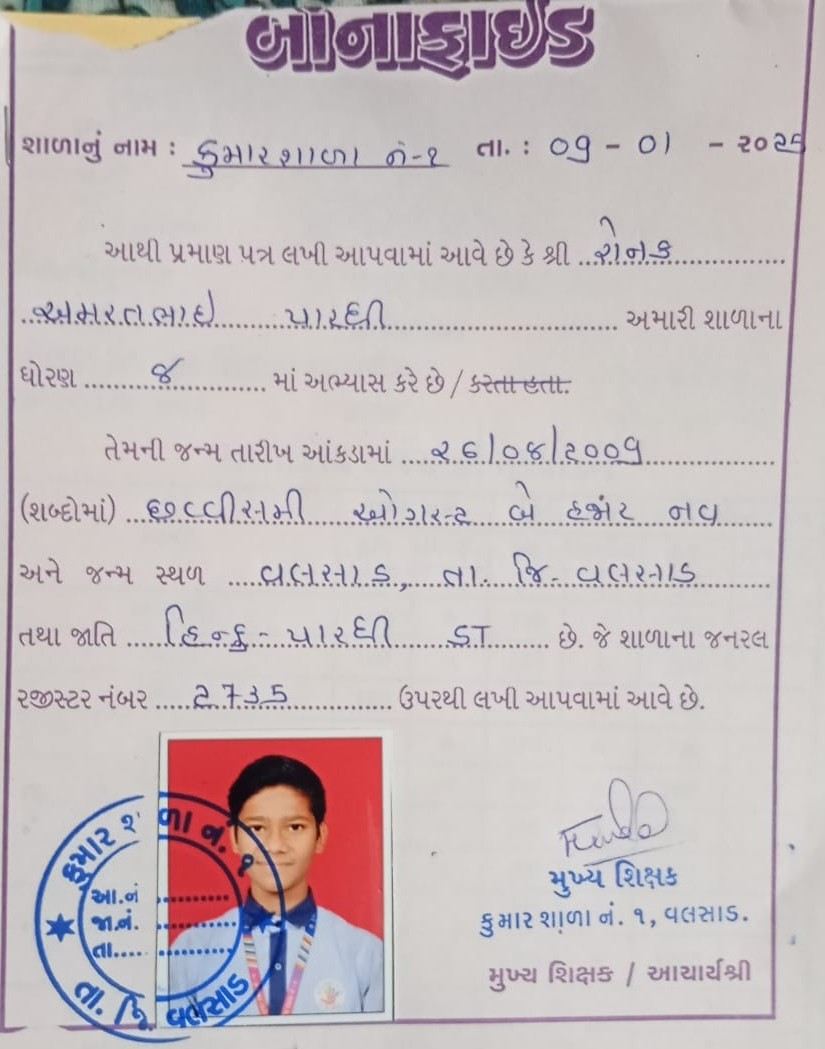 બોનાફાઈડ
શાળાનું નામ : કુમારશાળા નં-૧ તા. : ૦૭ - ૦1 - ૨૦૨૬
આથી પ્રમાણ પત્ર લખી આપવામાં આવે છે કે શ્રી ...રોનક..............
..અમરતભાઈ...... પારધી............................ અમારી શાળાના
ધોરણ ........૪............ માં અભ્યાસ કરે છે / કરતા હતા.
તેમની જન્મ તારીખ આંકડામાં ...૨૬/૦૪/૨૦૦૯..............
(શબ્દોમાં) ..છવ્વીસમી ઓગસ્ટ બે હજાર નવ
અને જન્મ સ્થળ ....વલસાડ, તા. જિ- વલસાડ.........
તથા જાતિ .....હિન્દુ - પારધી ST........ છે. જે શાળાના જનરલ
રજીસ્ટર નંબર .....2735............. ઉપરથી લખી આપવામાં આવે છે.
કુમાર શાળા નં. ૧
આ.નં ............
જા.નં. ............
તા................
તા. જિ. વલસાડ
મુખ્ય શિક્ષક
કુમાર શાળા નં. ૧, વલસાડ.
મુખ્ય શિક્ષક / આચાર્યશ્રી